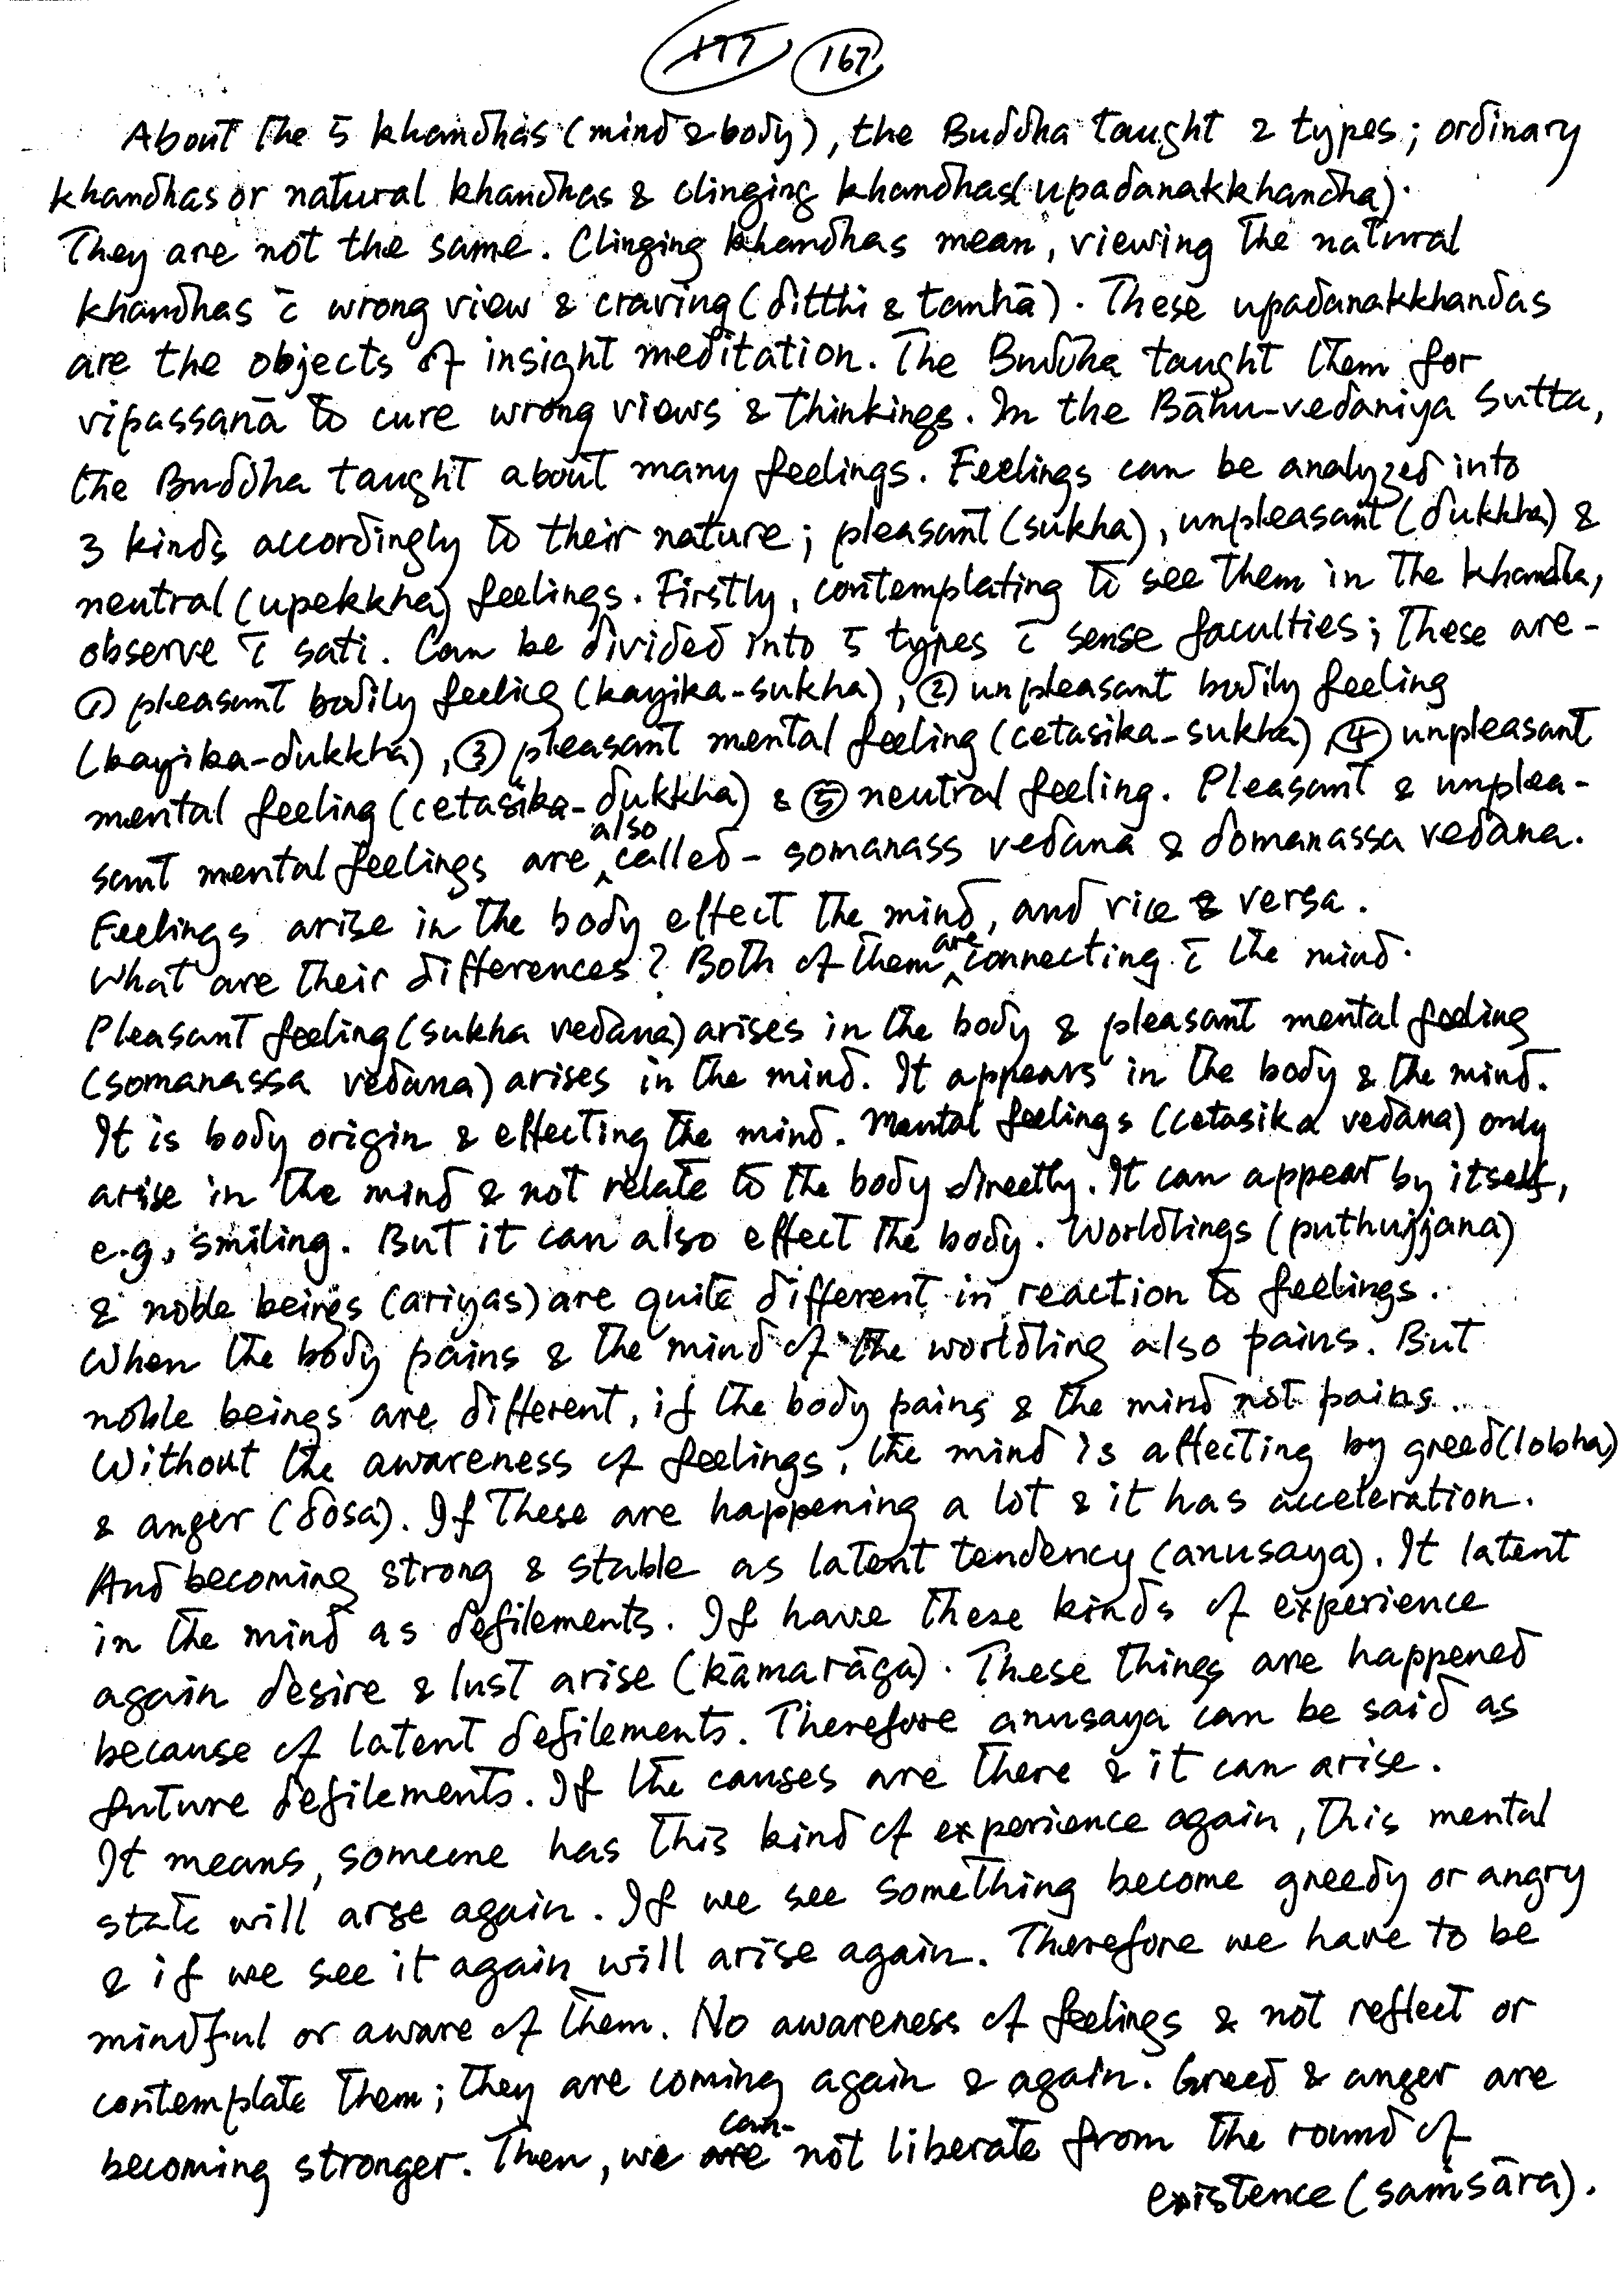 177 167
About the 5 khandhas (mind & body), the Buddha taught 2 types; ordinary
khandhas or natural khandhas & clinging khandhas (upadanakkhandha).
They are not the same. Clinging khandhas mean, viewing the natural
khandhas c̄ wrong view & craving (ditthi & tamhā). These upadanakkhandas
are the objects of insight meditation. The Buddha taught them for
vipassanā to cure wrong views & thinkings. In the Bāhu-vedaniya Sutta,
the Buddha taught about many feelings. Feelings can be analyzed into
3 kinds accordingly to their nature; pleasant (sukha), unpleasant (dukkha) &
neutral (upekkha) feelings. Firstly, contemplating to see them in the khandha,
observe c̄ sati. Can be divided into 5 types c̄ sense faculties; These are -
① pleasant bodily feeling (kayika-sukha), ② unpleasant bodily feeling
(kayika-dukkha), ③ pleasant mental feeling (cetasika-sukha), ④ unpleasant
mental feeling (cetasika-dukkha) & ⑤ neutral feeling. Pleasant & unplea-
sant mental feelings are also called - somanass vedana & domanassa vedana.
Feelings arise in the body effect the mind, and vice & versa.
What are their differences? Both of them are connecting c̄ the mind.
Pleasant feeling (sukha vedana) arises in the body & pleasant mental feeling
(somanassa vedana) arises in the mind. It appears in the body & the mind.
It is body origin & effecting the mind. Mental feelings (cetasika vedana) only
arise in the mind & not relate to the body directly. It can appear by itself,
e.g, smiling. But it can also effect the body. Worldlings (puthujjana)
& noble beings (ariyas) are quite different in reaction to feelings.
When the body pains & the mind of the worldling also pains. But
noble beings are different, if the body pains & the mind not pains.
Without the awareness of feelings, the mind is affecting by greed (lobha)
& anger (dosa). If these are happening a lot & it has acceleration.
And becoming strong & stable as latent tendency (anusaya). It latent
in the mind as defilements. If have these kinds of experience
again desire & lust arise (kāmarāga). These things are happened
because of latent defilements. Therefore anusaya can be said as
future defilements. If the causes are there & it can arise.
It means, someone has this kind of experience again, this mental
state will arse again. If we see something become greedy or angry
& if we see it again will arise again. Therefore we have to be
mindful or aware of them. No awareness of feelings & not reflect or
contemplate them; they are coming again & again. Greed & anger are
becoming stronger. Then, we can- not liberate from the round of
existence (saṁsāra).